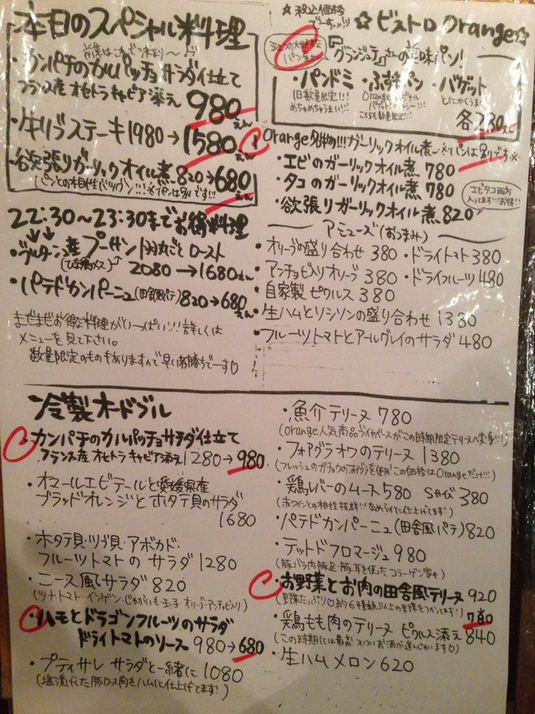 本日のスペシャル料理
・カンパチのカルパッチョサラダ仕立て
フランス産オセトラキャビア添え
980えん
・牛リブステーキ1980→1580えん
・欲張りガーリックオイル煮820→680えん
22:30〜23:30までお得料理
2080→1680えん
・パテドカンパーニュ(田舎風パテ)820→680えん
まだまだお得な料理がいーっぱい!!!詳しくは
メニューを見て下さい。
数量限定のものもありますので早い者勝ちでーす♡
※税込価格
でーす
☆ビストロOrange☆
・パンドミ
・バゲット
各230えん
Orange名物!!!ガーリックオイル煮
・エビのガーリックオイル煮 780
・タコのガーリックオイル煮 780
・欲張りガーリックオイル煮 820
アミューズ(おつまみ)
・オリーブの盛り合わせ 380
・ドライトマト 380
・アンチョビ入りオリーブ 380
・ドライフルーツ 480
・自家製ピクルス 380
・生ハムとソシソンの盛り合わせ 1380
・フルーツトマトとアールグレイのサラダ 480
冷製オードブル
・カンパチのカルパッチョサラダ仕立て
フランス産オセトラキャビア添え 1280→980
・オマールエビテールと愛媛県産
ブラッドオレンジとホタテ貝のサラダ
1680
・ホタテ貝・ツブ貝・アボカド・
フルーツトマトのサラダ 1280
・ニース風サラダ 820
(ツナ・トマト・インゲン・じゃがいも・玉子・オリーブ・アンチョビ入り)
・ハモとドラゴンフルーツのサラダ
ドライトマトのソース 980→680
・プティサレ サラダと一緒に 1080
(塩漬けした豚ロース肉をハムに仕上げてます!)
・魚介テリーヌ 780
・フォアグラオワのテリーヌ 1380
・鶏レバーのムース580 Sサイズ380
・パテドカンパーニュ(田舎風パテ)820
・テットドフロマージュ 980
・お野菜とお肉の田舎風テリーヌ 920
780
・鶏もも肉のテリーヌ ピクルス添え 840
・生ハムメロン 620